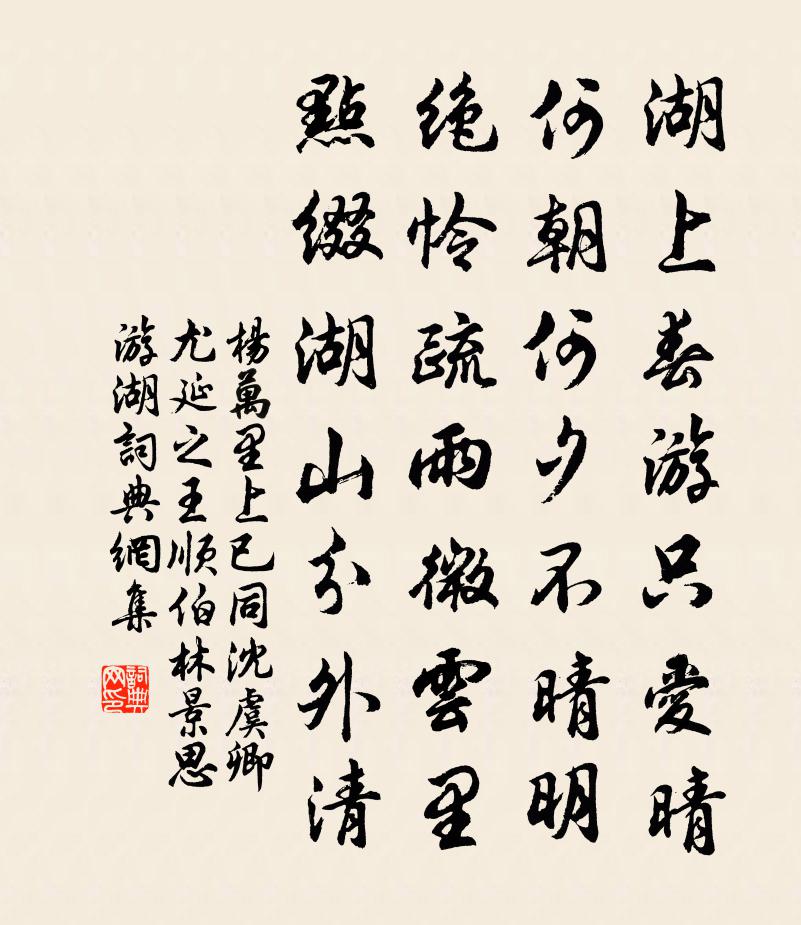 湖上春游只愛晴
何朝何夕不晴明
絶怜疏雨微雲里
點綴湖山分外清
楊萬里上巳同沈虞卿
尤延之王順伯林景思
游湖詞典網集
詞典
网印